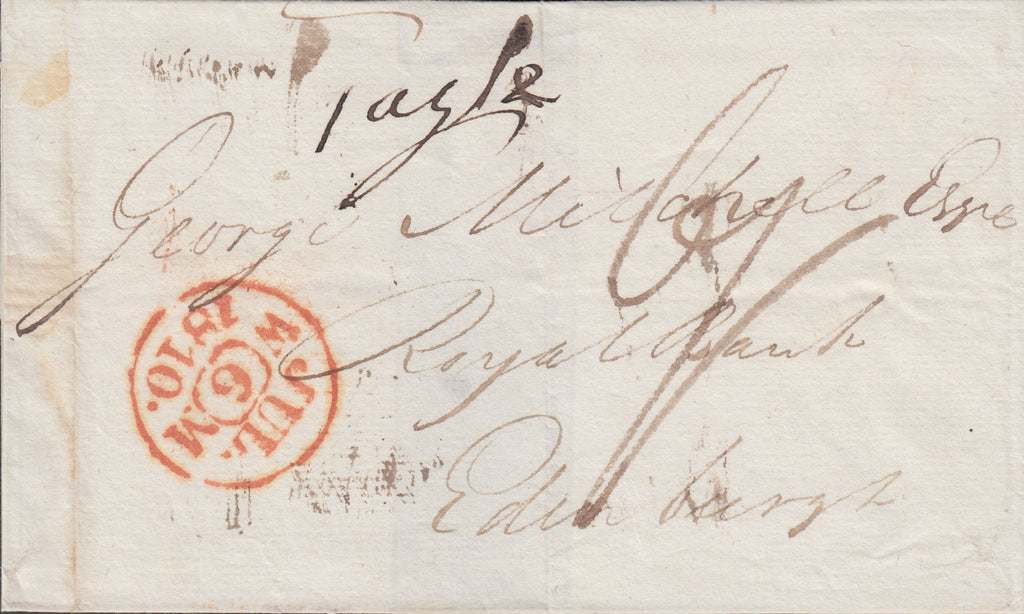 Tayle
George Mitchell Esqre
Royal Bank
Edinburgh
W. JUL.
6
M
1810.